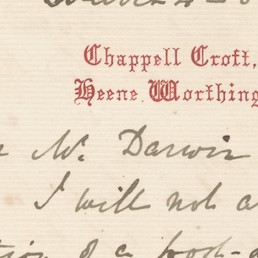 Chappell Croft,
Heene, Worthing
Mr. Darwin
I will not a
of a